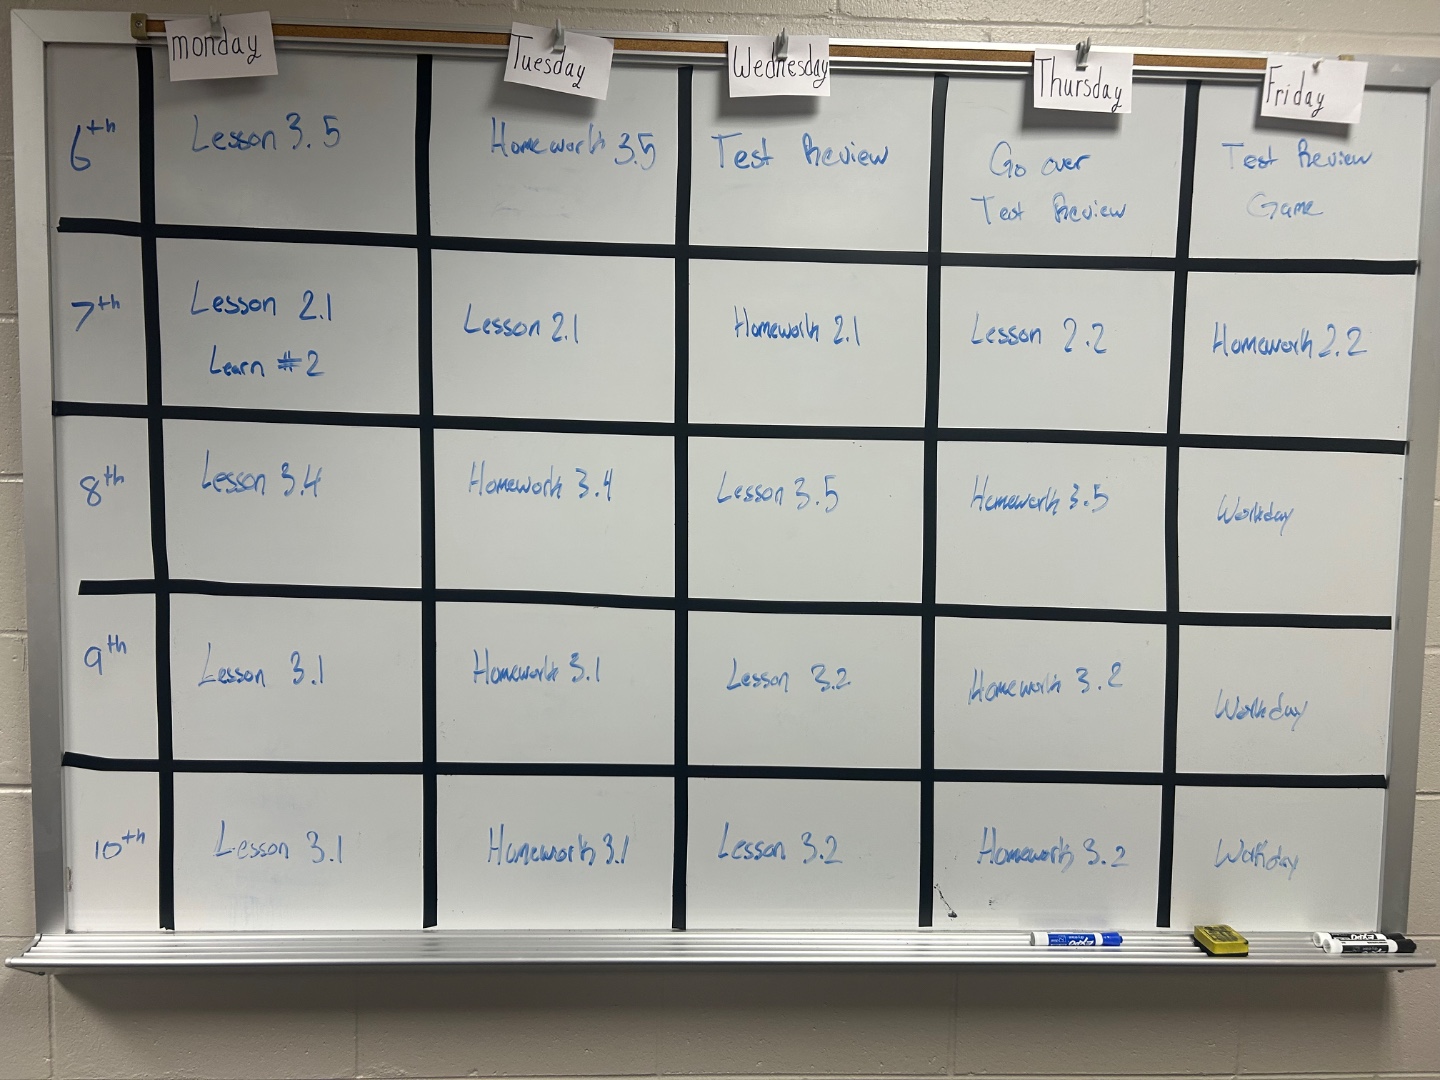 monday
Tuesday
Wednesday
Thursday
Friday
6th
Lesson 3.5
Homework 3.5
Test Review
Go over
Test Review
Test Review
Game
7th
Lesson 2.1
Learn #2
Lesson 2.1
Homework 2.1
Lesson 2.2
Homework 2.2
8th
Lesson 3.4
Homework 3.4
Lesson 3.5
Homework 3.5
Workday
9th
Lesson 3.1
Homework 3.1
Lesson 3.2
Homework 3.2
Workday
10th
Lesson 3.1
Homework 3.1
Lesson 3.2
Homework 3.2
Workday
EXPO
EXPO